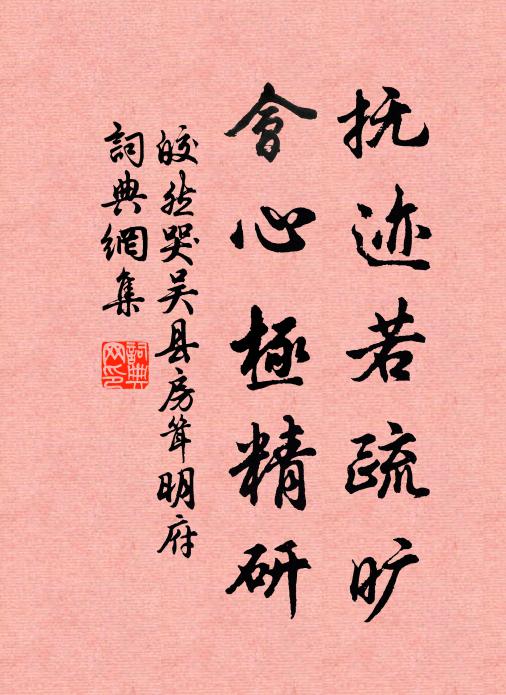 抚迹若疏旷
會心極精研
皎然哭吴县房耸明府
詞典網集
詞典网印